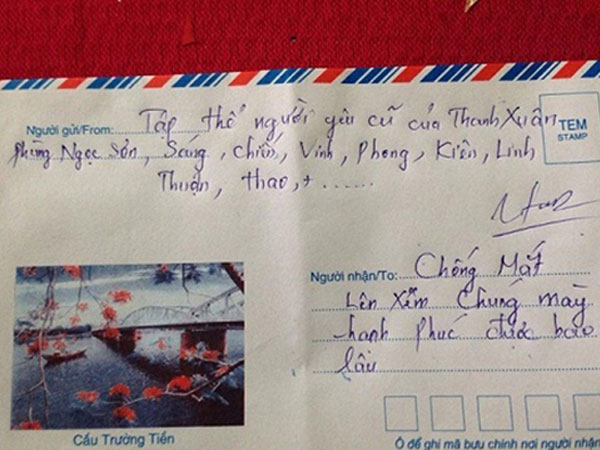 Người gửi/From: Tập thể người yêu cũ của Thanh Xuân
TEM
STAMP
Phùng Ngọc Sơn, Sang, Chiến, Vinh, Phong, Kiên, Linh
Thuận, thao, + ......
Người nhận/To: Chống Mắt
Lên Xem Chúng mày
hạnh phúc được bao
lâu
Cầu Trường Tiền
Ô để ghi mã bưu chính nơi người nhận